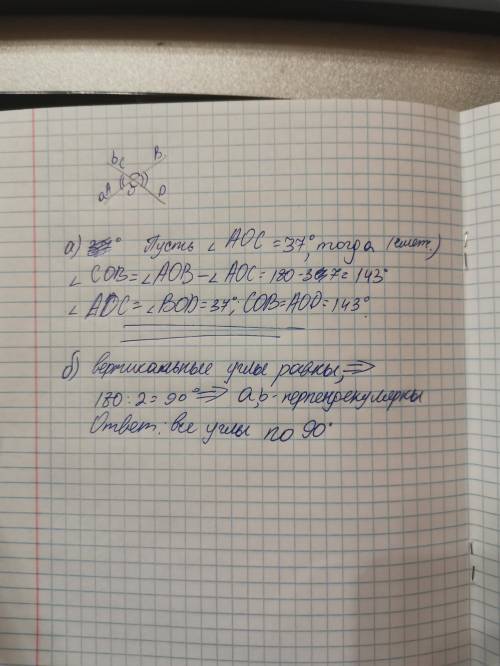 b C B
a A O D
а) Пусть ∠AOC = 37°, тогда (смеж.)
∠COB = ∠AOB - ∠AOC = 180 - 37 = 143°
∠AOC = ∠BOD = 37°; COB = AOD = 143°.
б) вертикальные углы равны, ⇒
180 : 2 = 90° ⇒ a, b - перпендикулярны
Ответ: все углы по 90°